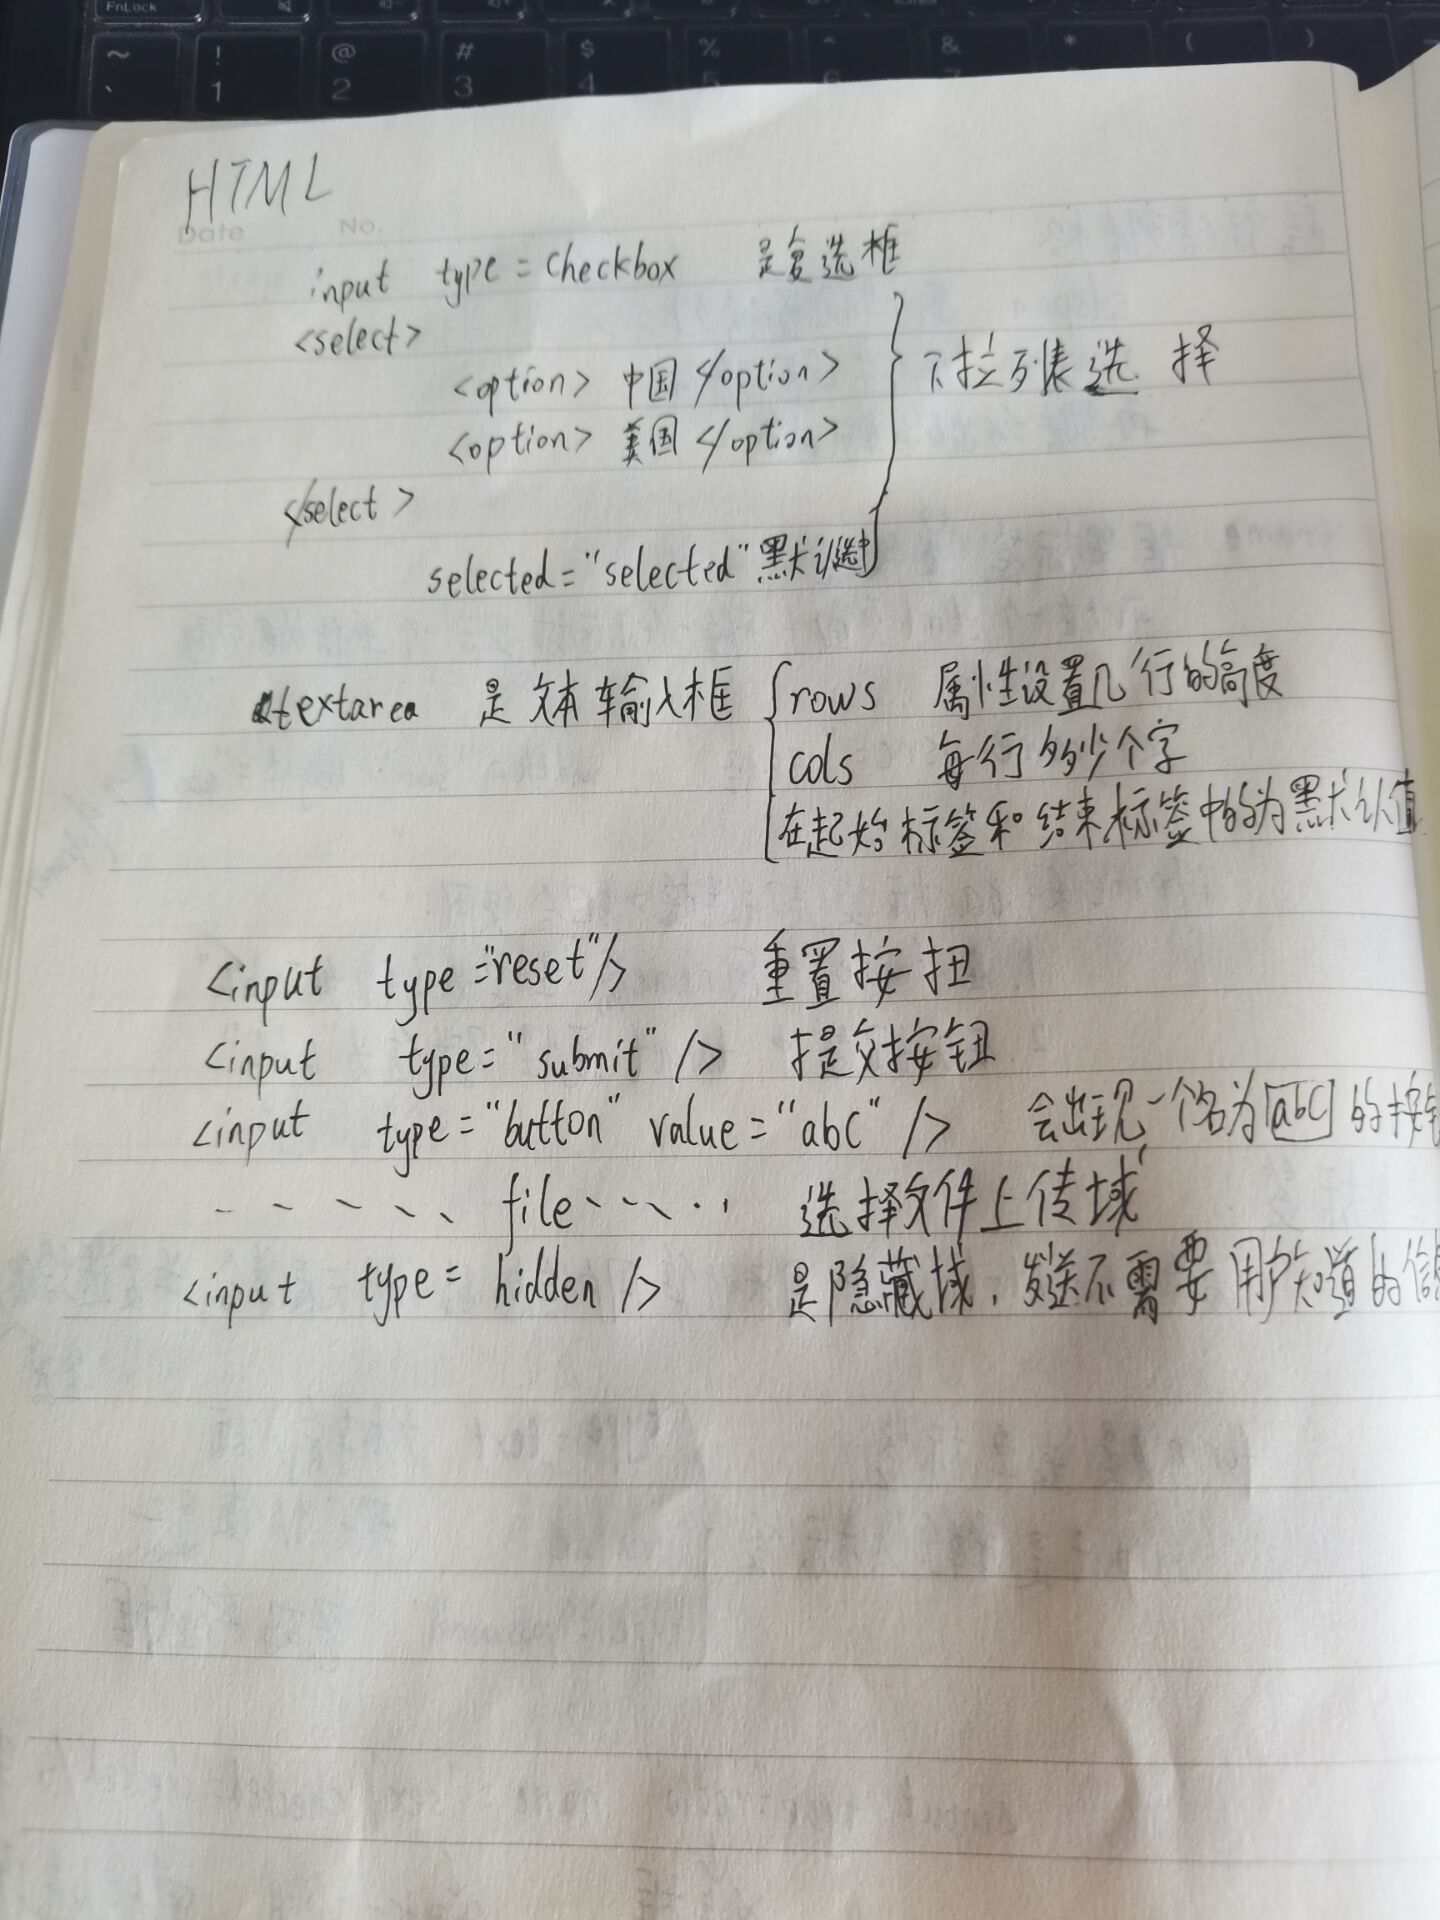 FnLock
~ ! @ # $ % ^ & * ( )
` 1 2 3 4 5 6 7
HTML
Date No.
input type=checkbox 是复选框
<select>
<option> 中国 </option>
<option> 美国 </option>
下拉列表选择
</select>
selected="selected" 默认选中
textarea 是文本输入框 rows 属性设置几行的高度
cols 每行多少个字
在起始标签和结束标签中的为默认值
<input type="reset"/> 重置按扭
<input type="submit" /> 提交按钮
<input type="button" value="abc" /> 会出现一个名为[abc]的按钮
file 选择文件上传域
<input type=hidden /> 是隐藏域,发送不需要用户知道的信